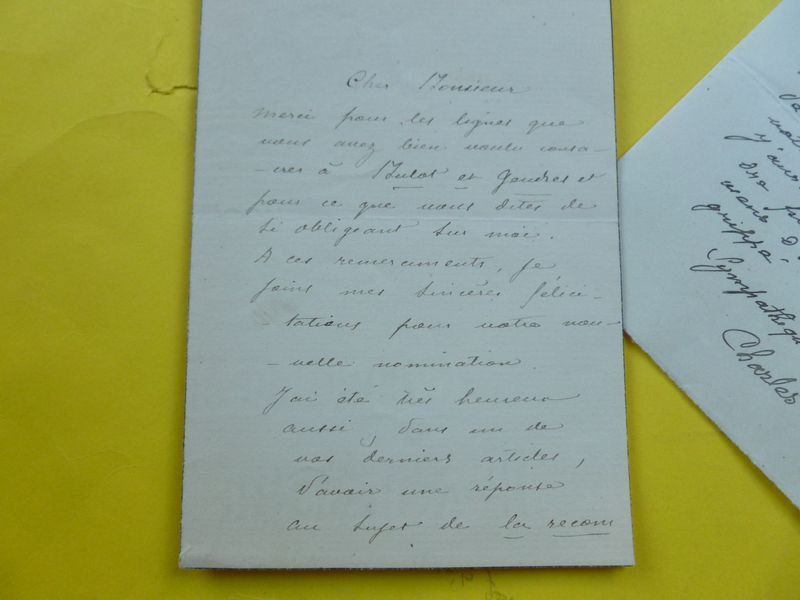 Cher Monsieur
merci pour les lignes que
vous avez bien voulu consa-
-crer à Bulot et Gendres et
pour ce que vous dites de
si obligeant sur moi.
A ces remerciments, je
joins mes sincères félici-
-tations pour votre nou-
-velle nomination.
J'ai été très heureux
aussi, dans un de
vos derniers articles,
d'avoir une réponse
au sujet de la recom
grippe
Sympathiqu
Charles